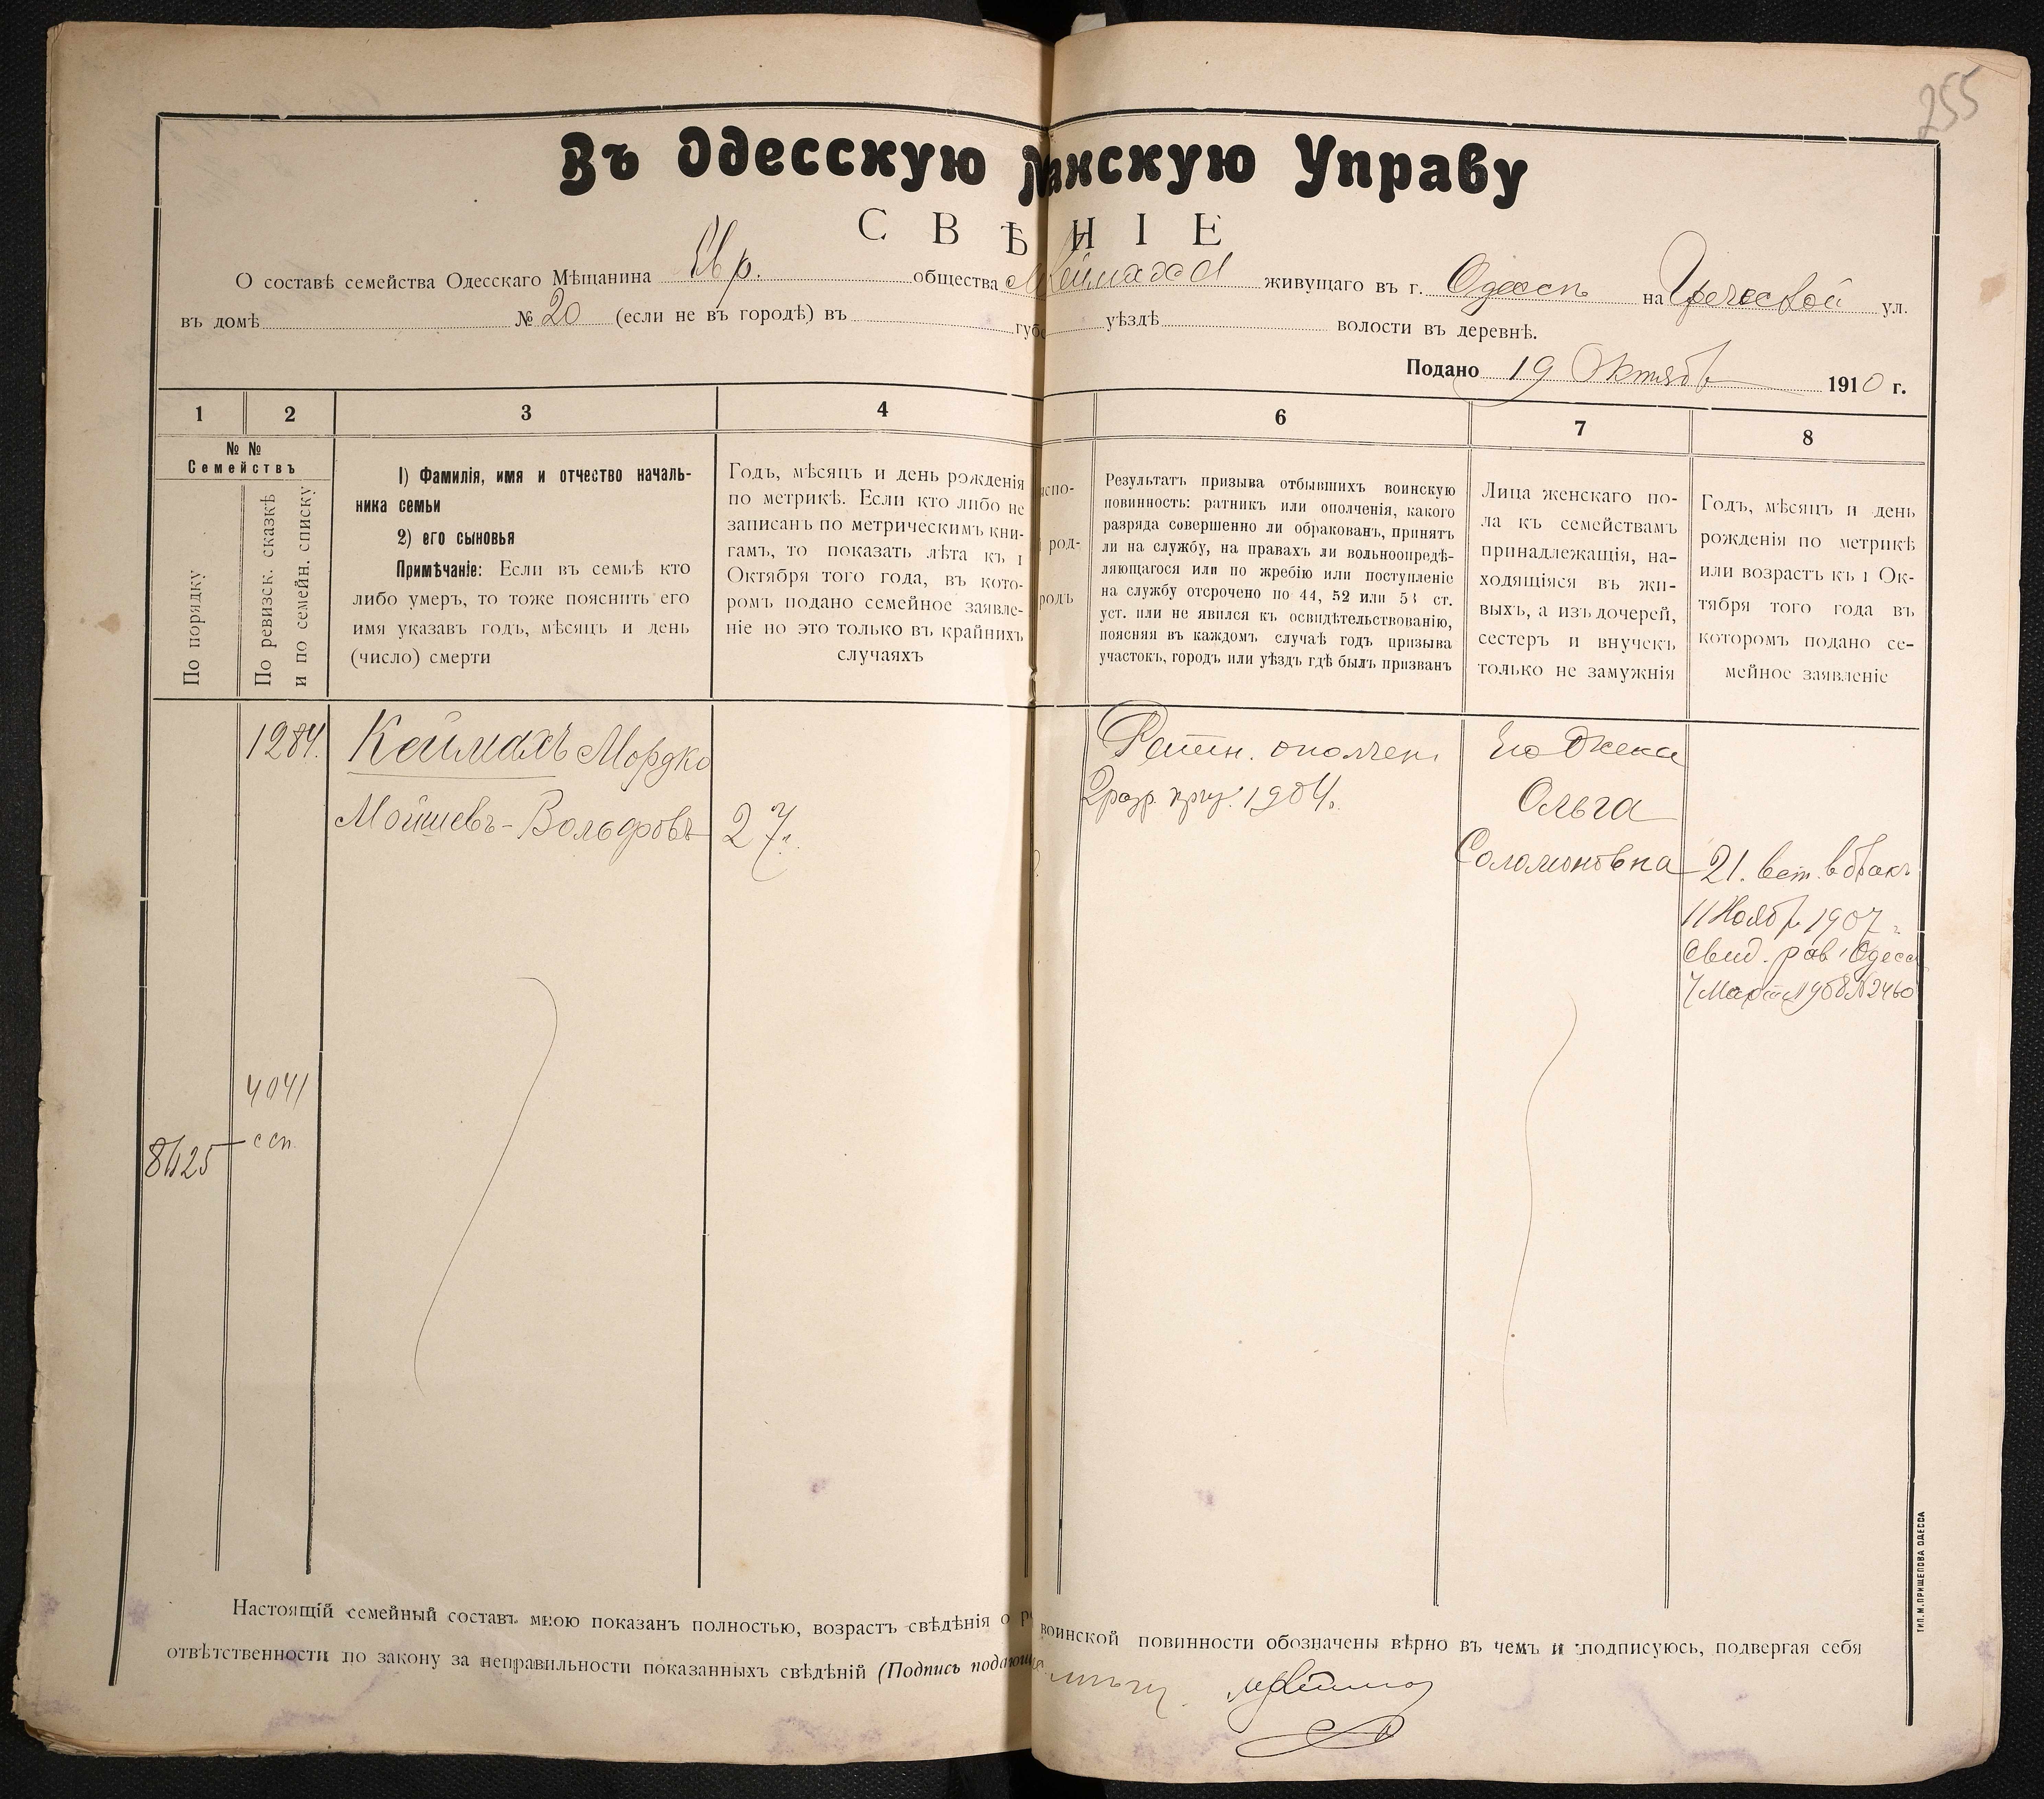 255
Въ Одесскую анскую Управу
СВѢНІЕ
О составѣ семейства Одесскаго Мѣщанина Евр. общества М Кеймаха живущаго въ г. Одессѣ на Греческой ул.
въ домѣ № 20 (если не въ городѣ) въ губ уѣздѣ волости въ деревнѣ.
Подано 19 Октябр 1910 г.
1 2 3 4 6 7 8
№ №
Семействъ
По порядку
По ревизск. сказкѣ
и по семейн. списку
1) Фамилія, имя и отчество началь-
ника семьи
2) его сыновья
Примѣчаніе: Если въ семьѣ кто
либо умеръ, то тоже пояснить его
имя указавъ годъ, мѣсяцъ и день
(число) смерти
Годъ, мѣсяцъ и день рожденія
по метрикѣ. Если кто либо не
записанъ по метрическимъ кни-
гамъ, то показать лѣта къ 1
Октября того года, въ кото-
ромъ подано семейное заявле-
ніе но это только въ крайнихъ
случаяхъ
испо-
род-
родъ
Результатъ призыва отбывшихъ воинскую
повинность: ратникъ или ополченія, какого
разряда совершенно ли обракованъ, принятъ
ли на службу, на правахъ ли вольноопредѣ-
ляющагося или по жребію или поступленіе
на службу отсрочено по 44, 52 или 53 ст.
уст. или не явился къ освидѣтельствованію,
поясняя въ каждомъ случаѣ годъ призыва
участокъ, городъ или уѣздъ гдѣ былъ призванъ
Лица женскаго по-
ла къ семействамъ
принадлежащія, на-
ходящіяся въ жи-
выхъ, а изъ дочерей,
сестеръ и внучекъ
только не замужнія
Годъ, мѣсяцъ и день
рожденія по метрикѣ
или возрастъ къ 1 Ок-
тября того года въ
которомъ подано се-
мейное заявленіе
1284. Кеймахъ Мордко
Мойшевъ-Вольфовъ 27 г.
Ратн. ополчен.
2 разр. приз. 1904 г.
Его жена
Ольга
Соломоновна 21. вст. в бракъ
11 Ноябр 1907 г.
свид. рав. Одесс
7 Март 1908 № 2460
4041
ссп
Настоящій семейный составъ мною показанъ полностью, возрастъ свѣдѣнія о воинской повинности обозначены вѣрно въ чемъ и подписуюсь, подвергая себя
отвѣтственности по закону за неправильности показанныхъ свѣдѣній (Подпись подающ
ТИП. М. ПРИЩЕПОВА ОДЕССА